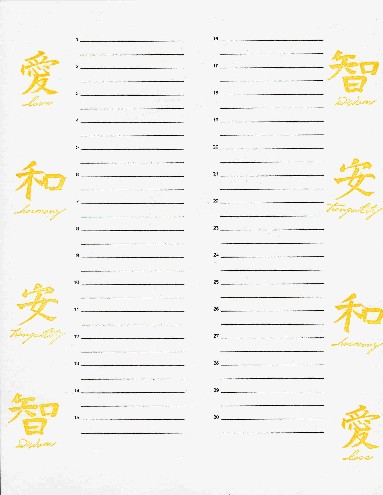 愛
love
和
harmony
安
tranquility
智
wisdom
1
2
3
4
5
6
7
8
9
10
11
12
13
14
15
16
17
18
19
20
21
22
23
24
25
26
27
28
29
30
智
wisdom
安
tranquility
和
harmony
愛
love